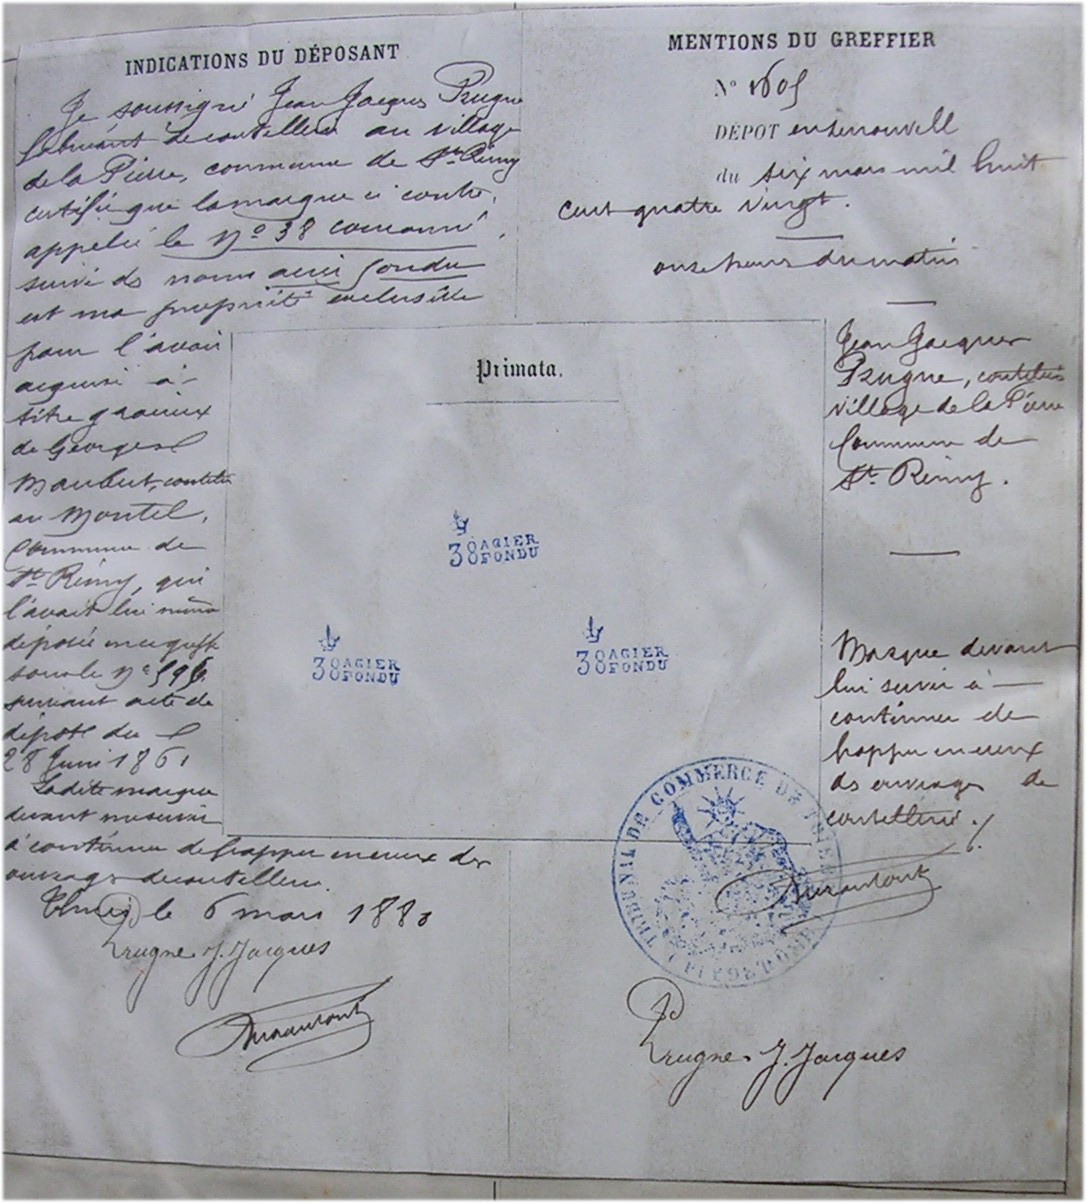 INDICATIONS DU DÉPOSANT
Je soussigné Jean Jacques Prugne
fabricant de coutellerie au village
de la Pierre, commune de St. Rémy
certifie que la marque ci contre,
appelée le No 38 couronné,
suivi des noms acier fondu
est ma propriété exclusive
pour l'avoir
acquise à
titre gracieux
de Georges
coutelier
au Montel,
Commune de
St. Rémy, qui
l'avait lui même
déposée au greffe
sous le No
suivant acte de
dépôt du
28 Juin 1861
Ladite marque
devant me servir
à continuer de frapper en creux des
ouvrages de coutellerie.
Thiers le 6 mars 1880
Prugne J. Jacques
MENTIONS DU GREFFIER
No 1605
DÉPOT en renouvell
du six mars mil huit
cent quatre vingt.
onze heures du matin
Jean Jacques
Prugne, coutelier
village de la Pierre
Commune de
St. Rémy.
Marque devant
lui servir à
continuer de
frapper en creux
des ouvrages de
coutellerie./.
Primata.
38 AGIER
FONDU
38 AGIER
FONDU
38 AGIER
FONDU
TRIBUNAL DE COMMERCE DE THIERS
(PUY DE DOME)
Prugne J. Jacques